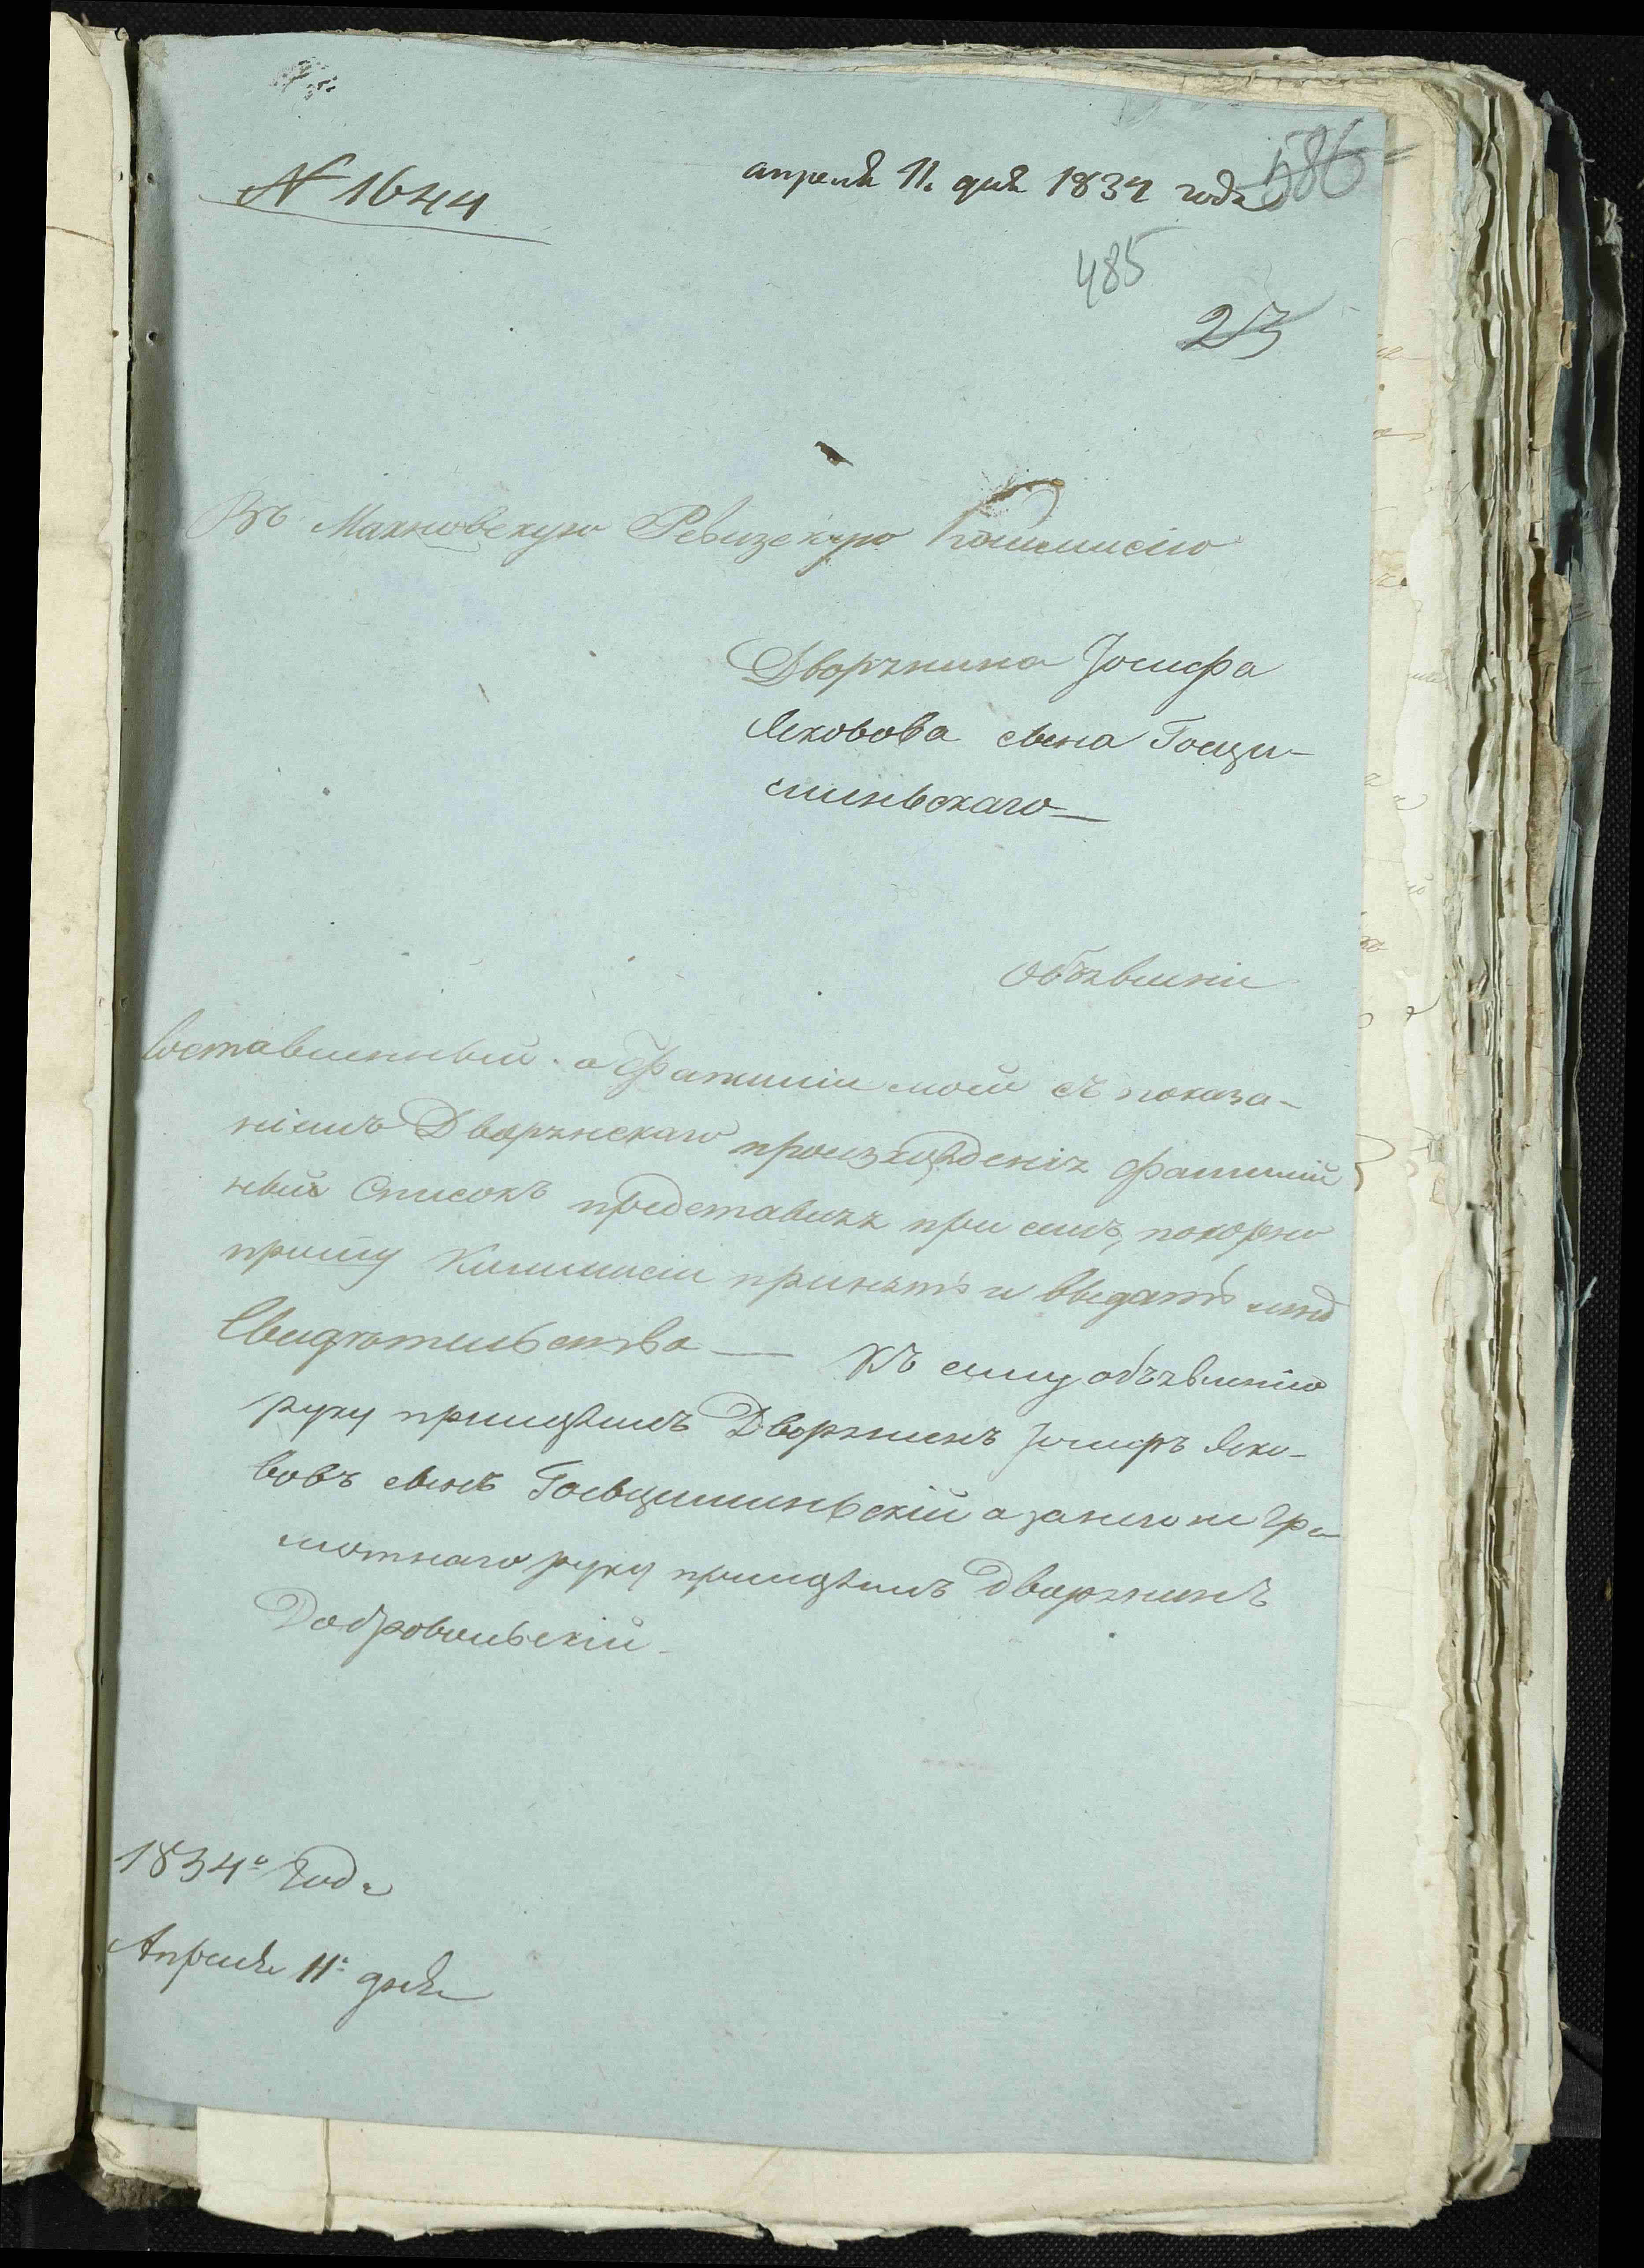 N 1644
апреля 11. дня 1834 года
586
485
23
Въ Махновскую Ревизскую Коммисію
Дворянина Іосифа
Яковова сына Гощи-
миньскаго
Объявленіе
Составленный о Фамиліи моей съ показа-
ніемъ Дворянскаго произхожденія фамилій
ный Списокъ представляя при семъ, покорно
прошу Коммисіи принять и выдать мнѣ
Свидѣтельства — Къ сему объявленію
руку приложилъ Дворянинъ Іосифъ Яко-
вовъ сынъ Госвциминьскій а за него не гра-
мотнаго руку приложилъ дворянинъ
Добровольскій
1834го Года
Апреля 11: дня